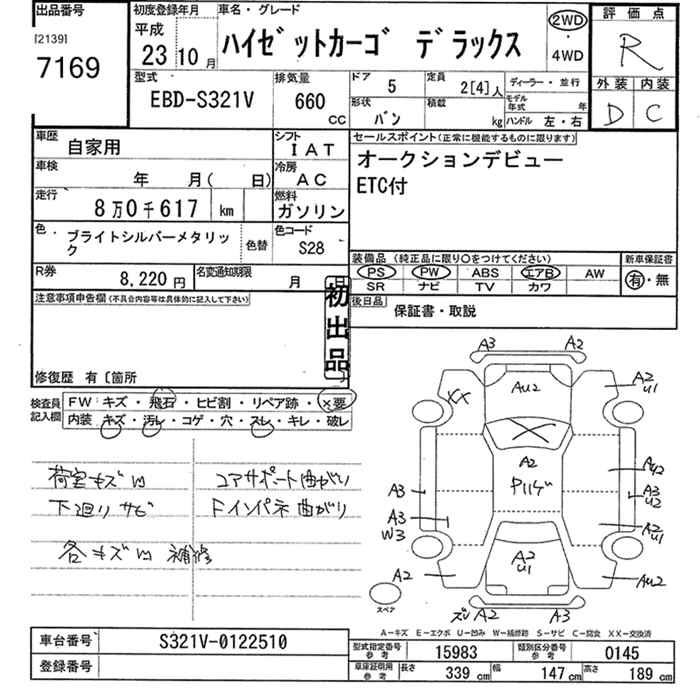 出品番号
[2139]
7169
初度登録年月
平成
23 10 月
車名・グレード
ハイゼットカーゴ デラックス
2WD
・
4WD
評価点
R
外装 内装
D C
型式
EBD-S321V
排気量
660 CC
ドア 5
定員 2[4]人
ディーラー・並行
形状 バン
積載 kg
モデル年式 年
ハンドル 左・右
車歴 自家用
シフト IAT
車検 年 月( 日)
冷房 AC
走行 8万0千617 km
燃料 ガソリン
色・ ブライトシルバーメタリック
色替
色コード S28
R券 8,220 円
名変通知期限 月 日
セールスポイント(正常に機能するものに限ります)
オークションデビュー
ETC付
装備品 (純正品に限り○をつけてください)
新車保証書
PS PW ABS エアB AW
SR ナビ TV カワ
有・無
後日品 保証書・取説
注意事項申告欄(不具合内容等は具体的に記入して下さい)
初出品
修復歴 有〔箇所 〕
検査員記入欄
FW キズ・飛石・ヒビ割・リペア跡・×要
内装 キズ・汚レ・コゲ・穴・スレ・キレ・破レ
荷室キズ凹 コアサポート曲がり
下廻りサビ Fインパネ曲がり
各キズ凹 補修
A3 A2
XX AU2 A2 U1
A2
A3 AU2
A3 U2
A3 W3
A2 U1
A2 U1
A2 AU2
スペア
ズレ A2 A3
A-キズ E-エクボ U-凹み W-補修跡 S-サビ C-腐食 XX-交換済
車台番号 S321V-0122510
登録番号
型式指定番号 参考 15983
類別区分番号 参考 0145
車庫証明用 参考 長さ 339 cm 幅 147 cm 高さ 189 cm